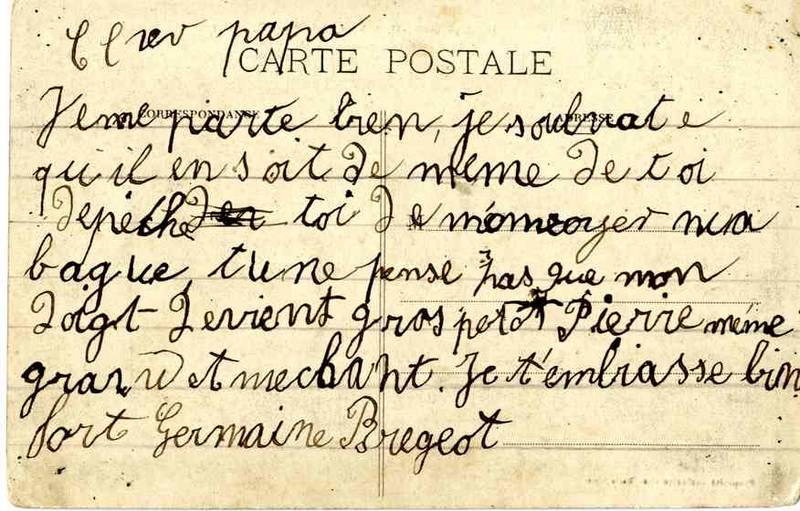 Cher papa
CARTE POSTALE
CORRESPONDANCE
ADRESSE
Je me parte bien, je souhaite
qu'il en soit de meme de toi
depêche toi de m'omvoyer ma
bague, tu ne pense pas que mon
doigt devient gros petot Pierrre méme
grand et mechant. Je t'embrasse bin
fort Germaine Bregeot